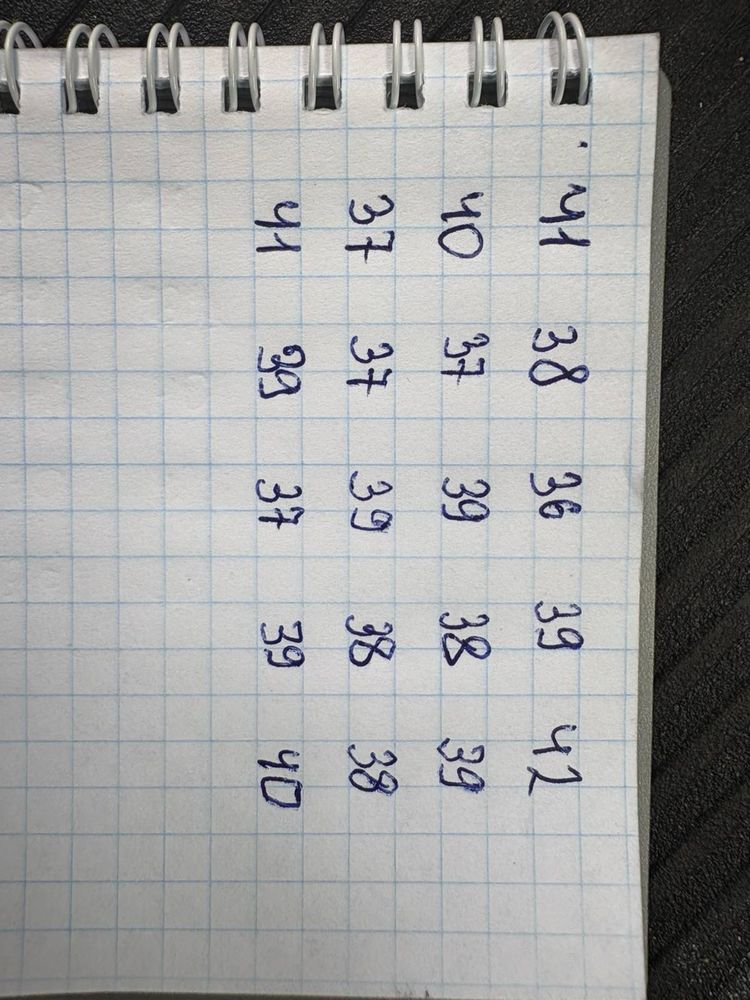 41 38 36 39 42
40 37 39 38 39
37 37 39 38 38
41 39 37 39 40